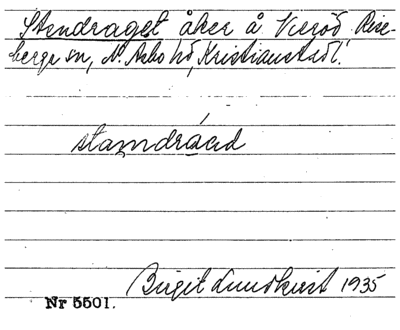 Stendraget åker å Veröd Rise-
berga sn, N. Åsbo hd, Kristianst. l.
Birgit Lundkvist 1935
Nr 5501.